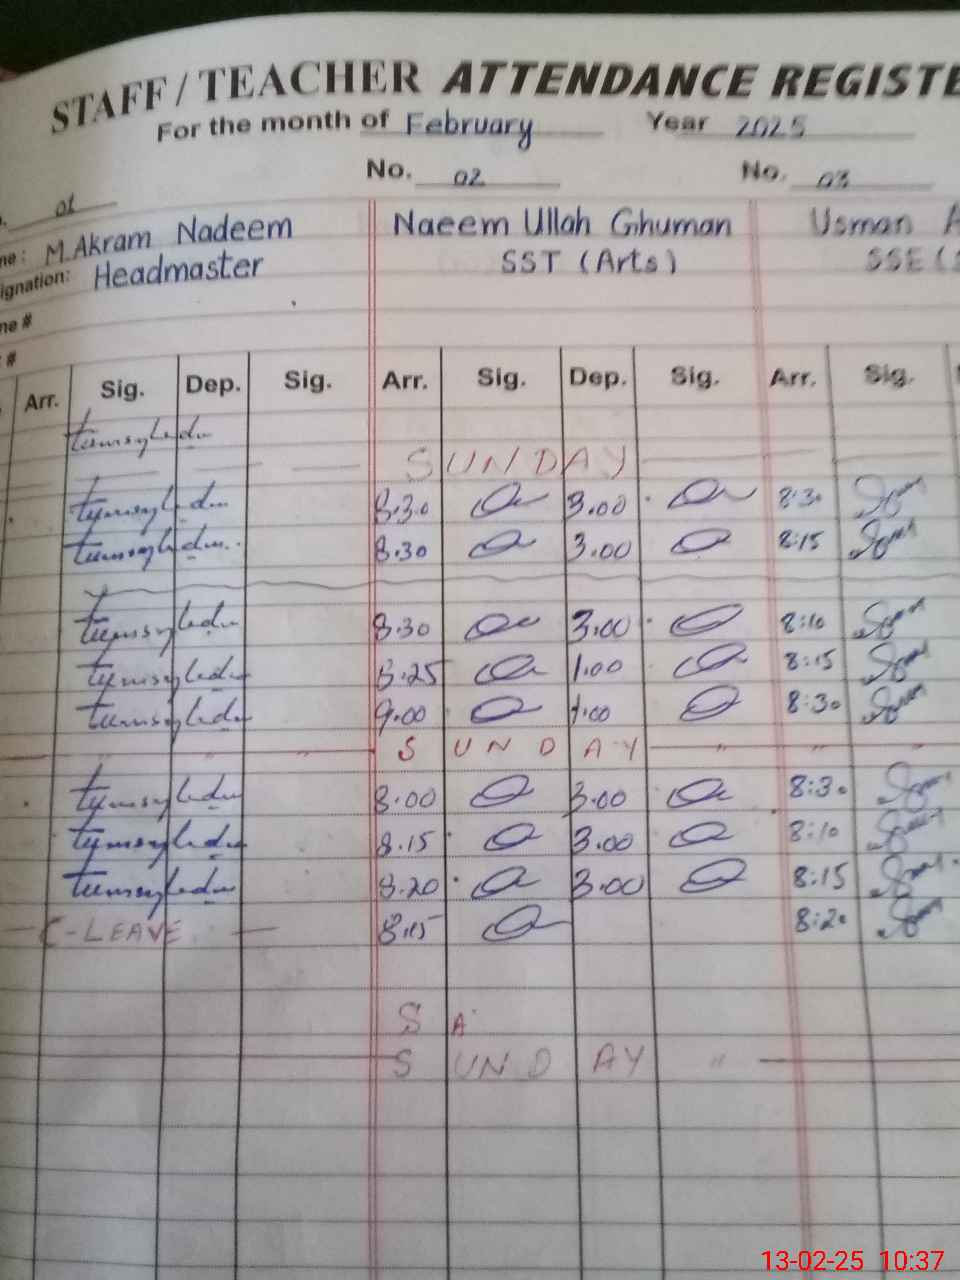 STAFF / TEACHER ATTENDANCE REGISTE
For the month of February Year 2025
01 No. 02 No. 03
me: M. Akram Nadeem Naeem Ullah Ghuman Usman A
ignation: Headmaster SST (Arts) SSE (
ne #
#
Arr. Sig. Dep. Sig. Arr. Sig. Dep. Sig. Arr. Sig.
SUNDAY
8.30 3.00 8:30
8.30 3.00 8:15
8.30 3.00 8:10
8.25 1.00 8:15
9.00 1.00 8:30
" S U N D A Y " " "
8.00 3.00 8:30
8.15 3.00 8:10
8.20 3.00 8:15
C-LEAVE 8.15 8:20
S A
S UND AY "
13-02-25 10:37